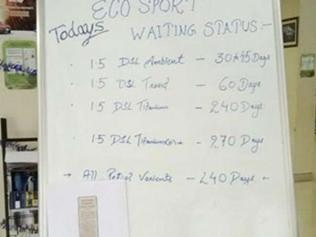 ECO SPORT
Todays WAITING STATUS:-
1.5 DSL Ambient - 30-45 Days
1.5 DSL Trend - 60 Days
1.5 DSL Titanium - 240 Days
1.5 DSL Titanium - 270 Days
→ All Petrol Varients - 240 Days ←